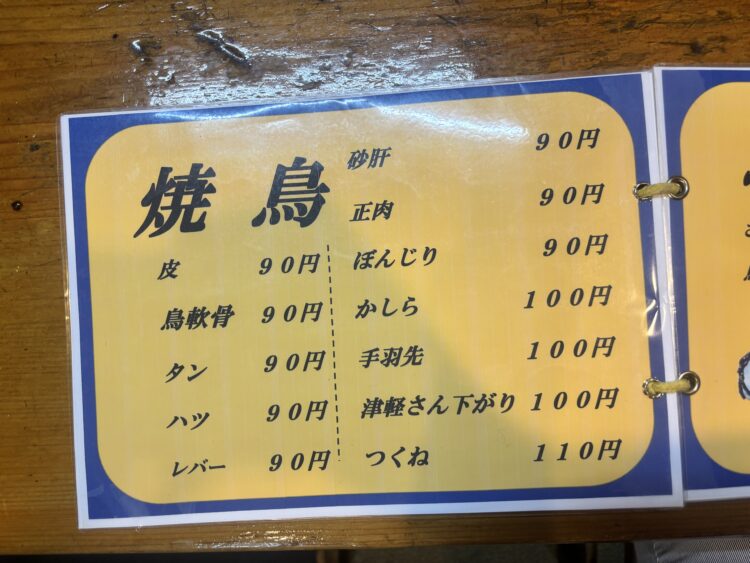 焼鳥
皮 90円
鳥軟骨 90円
タン 90円
ハツ 90円
レバー 90円
砂肝 90円
正肉 90円
ぼんじり 90円
かしら 100円
手羽先 100円
津軽さん下がり 100円
つくね 110円